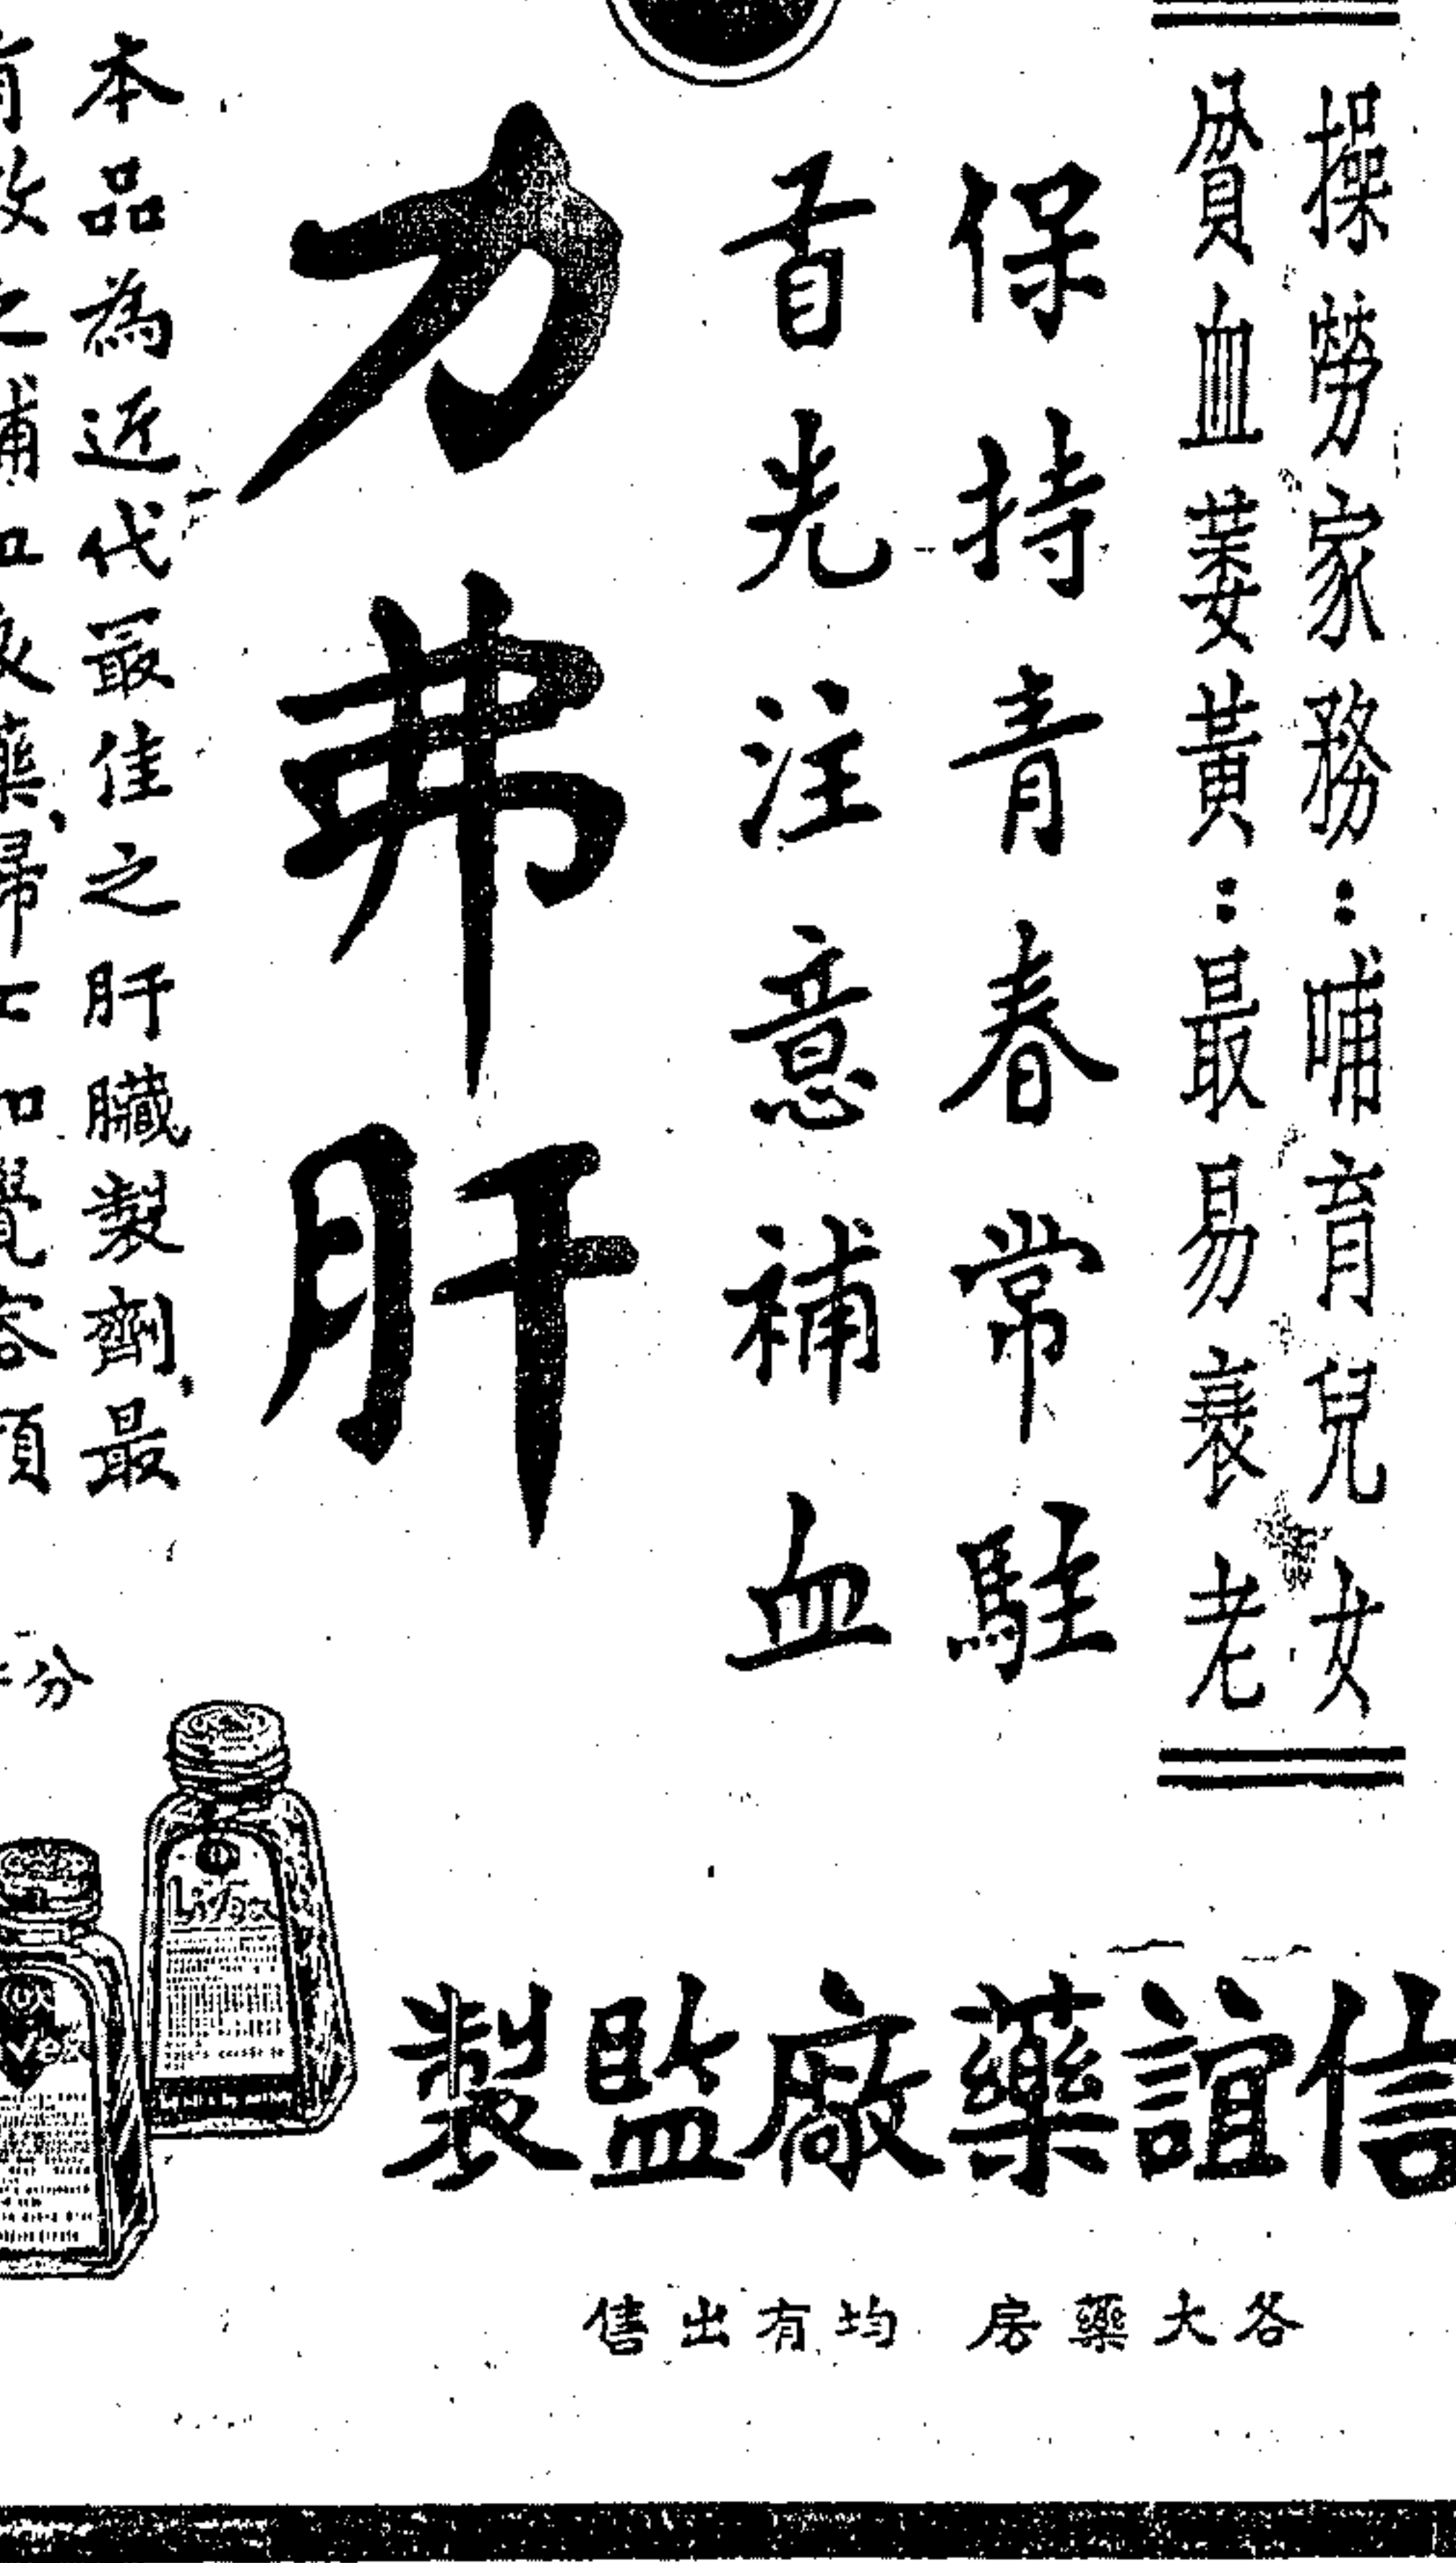 操勞家務：哺育兒女
貧血萎黃：最易衰老
保持青春常駐
首先注意補血
力弗肝
本品為近代最佳之肝臟製劑，最
有效之補血良藥，婦女如覺容顏
分
信誼藥廠監製
各大藥房 均有出售